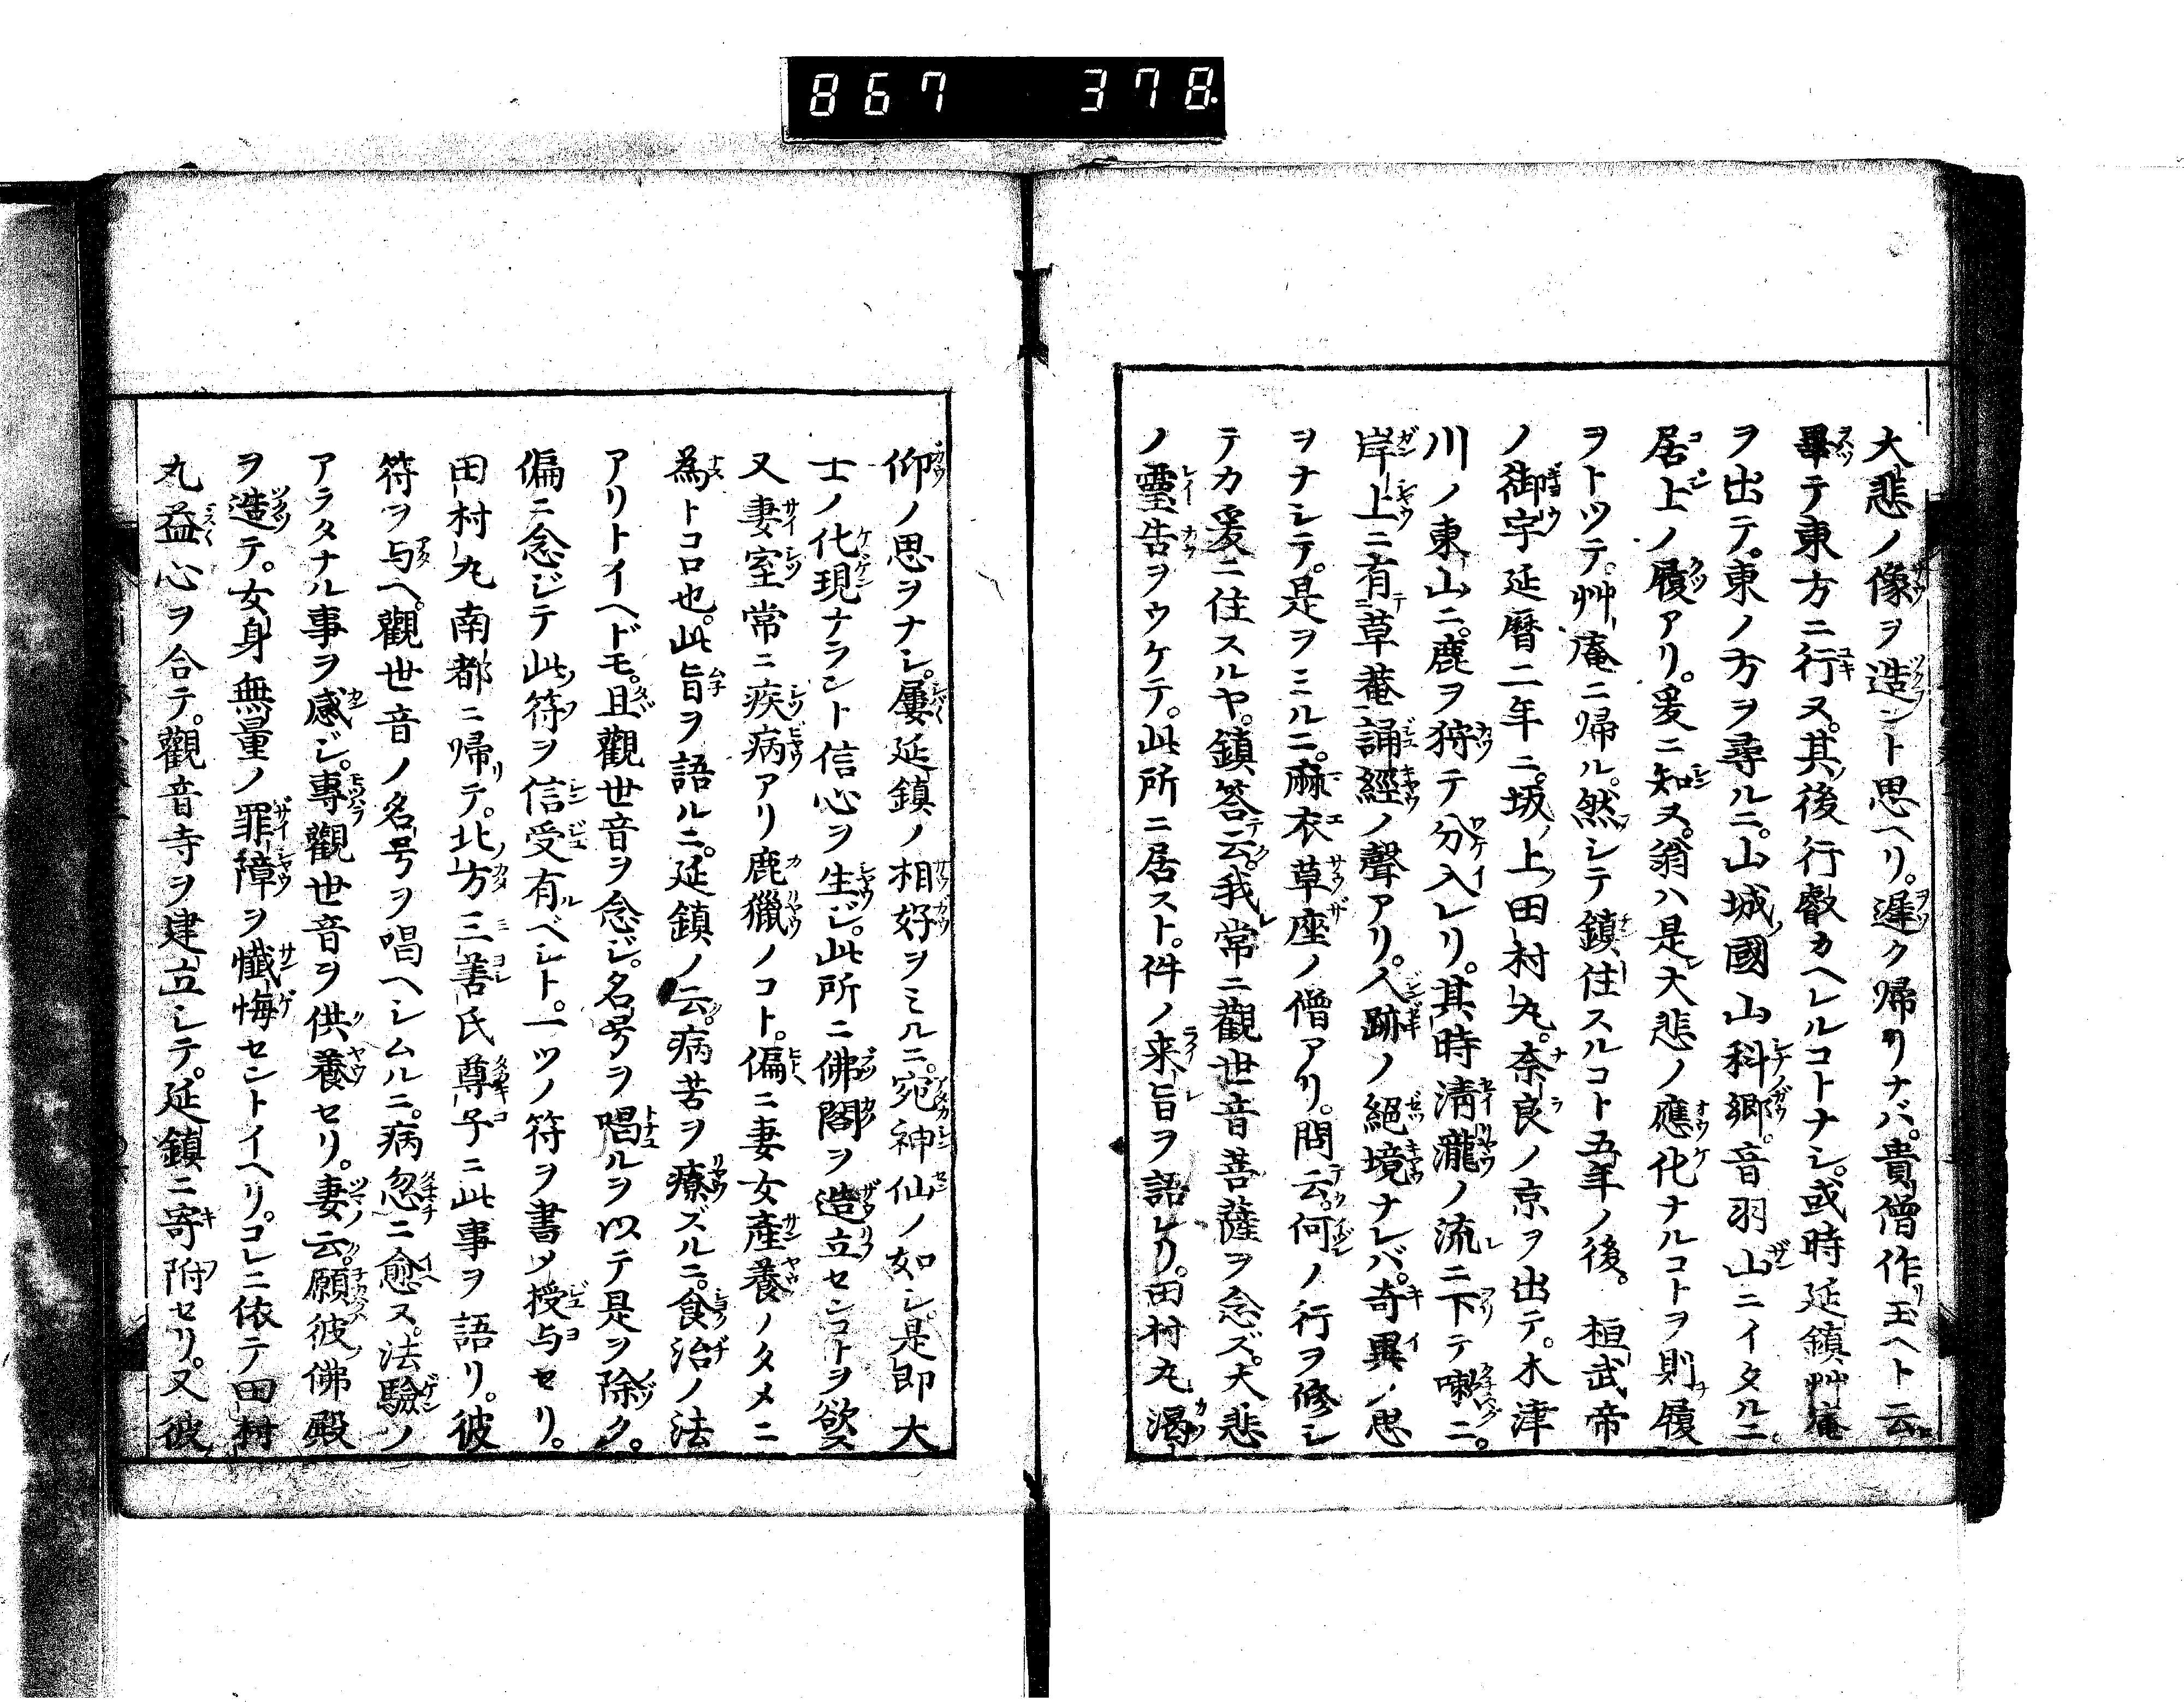 867 378
大悲ノ像ヲ造ント思ヘリ。遅ク帰リナバ。貴僧作リ玉ヘト云
畢テ東方ニ行ヌ。其後行叡カヘレルコトナシ。或時延鎮艸庵
ヲ出テ。東ノ方ヲ尋ルニ。山城國山科郷。音羽山ニイタルニ。
居上ノ履アリ。爰ニ知ヌ。翁ハ是大悲ノ應化ナルコトヲ則履
ヲトツテ。艸庵ニ帰ル。然シテ鎮住スルコト五年ノ後。桓武帝
ノ御宇延暦二年ニ。坂ノ上田村丸。奈良ノ京ヲ出テ。木津
川ノ東山ニ。鹿ヲ狩テ分入レリ。其時淸瀧ノ流レニ下テ喇ニ。
岸上ニ有草菴誦經ノ聲アリ。人跡ノ絕境ナレバ。奇異ノ思
ヲナシテ。是ヲミルニ。麻衣草座ノ僧アリ。問云。何ノ行ヲ修シ
テカ爰ニ住スルヤ。鎮答云。我常ニ觀世音菩薩ヲ念ズ。大悲
ノ靈告ヲウケテ。此所ニ居スト。件ノ来旨ヲ語レリ。田村丸渇
仰ノ思ヲナシ。屢延鎮ノ相好ヲミルニ。宛神仙ノ如シ。是即大
士ノ化現ナラント信心ヲ生ジ。此所ニ佛閣ヲ造立センコトヲ欲ス
又妻室常ニ疾病アリ鹿獵ノコト。偏ニ妻女產養ノタメニ
為トコロ也。此旨ヲ語ルニ。延鎮ノ云。病苦ヲ療ズルニ。食治ノ法
アリトイヘドモ。且觀世音ヲ念ジ。名号ヲ唱ルヲ以テ是ヲ除ク。
偏ニ念ジテ此符ヲ信受有ベシト。一ツノ符ヲ書メ授与セリ。
田村丸南都ニ帰テ。北ノ方三善氏尊子ニ此事ヲ語リ。彼
符ヲ与ヘ。觀世音ノ名号ヲ唱ヘシムルニ。病忽ニ愈ヌ。法驗ノ
アラタナル事ヲ感ジ。專觀世音ヲ供養セリ。妻ノ云。願彼佛殿
ヲ造テ。女身無量ノ罪障ヲ懺悔セントイヘリ。コレニ依テ田村
丸益心ヲ合テ。觀音寺ヲ建立シテ。延鎮ニ寄附セリ。又彼